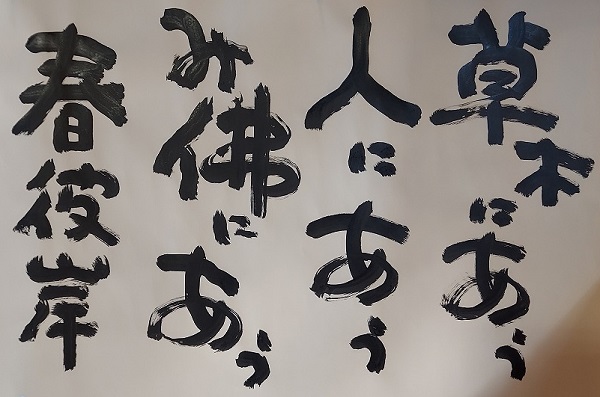 草木にあう
人にあう
み佛にあう
春彼岸